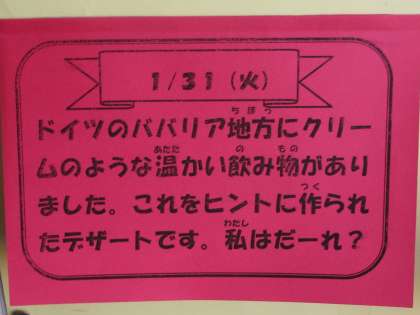 1/31(火)
ドイツのババリア地方にクリー
ムのような温かい飲み物があり
ました。これをヒントに作られ
たデザートです。私はだーれ？